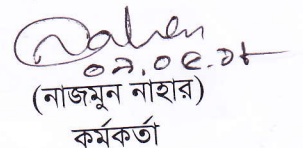 ০৯.০৫.১৮
(নাজমুন নাহার)
কর্মকর্তা